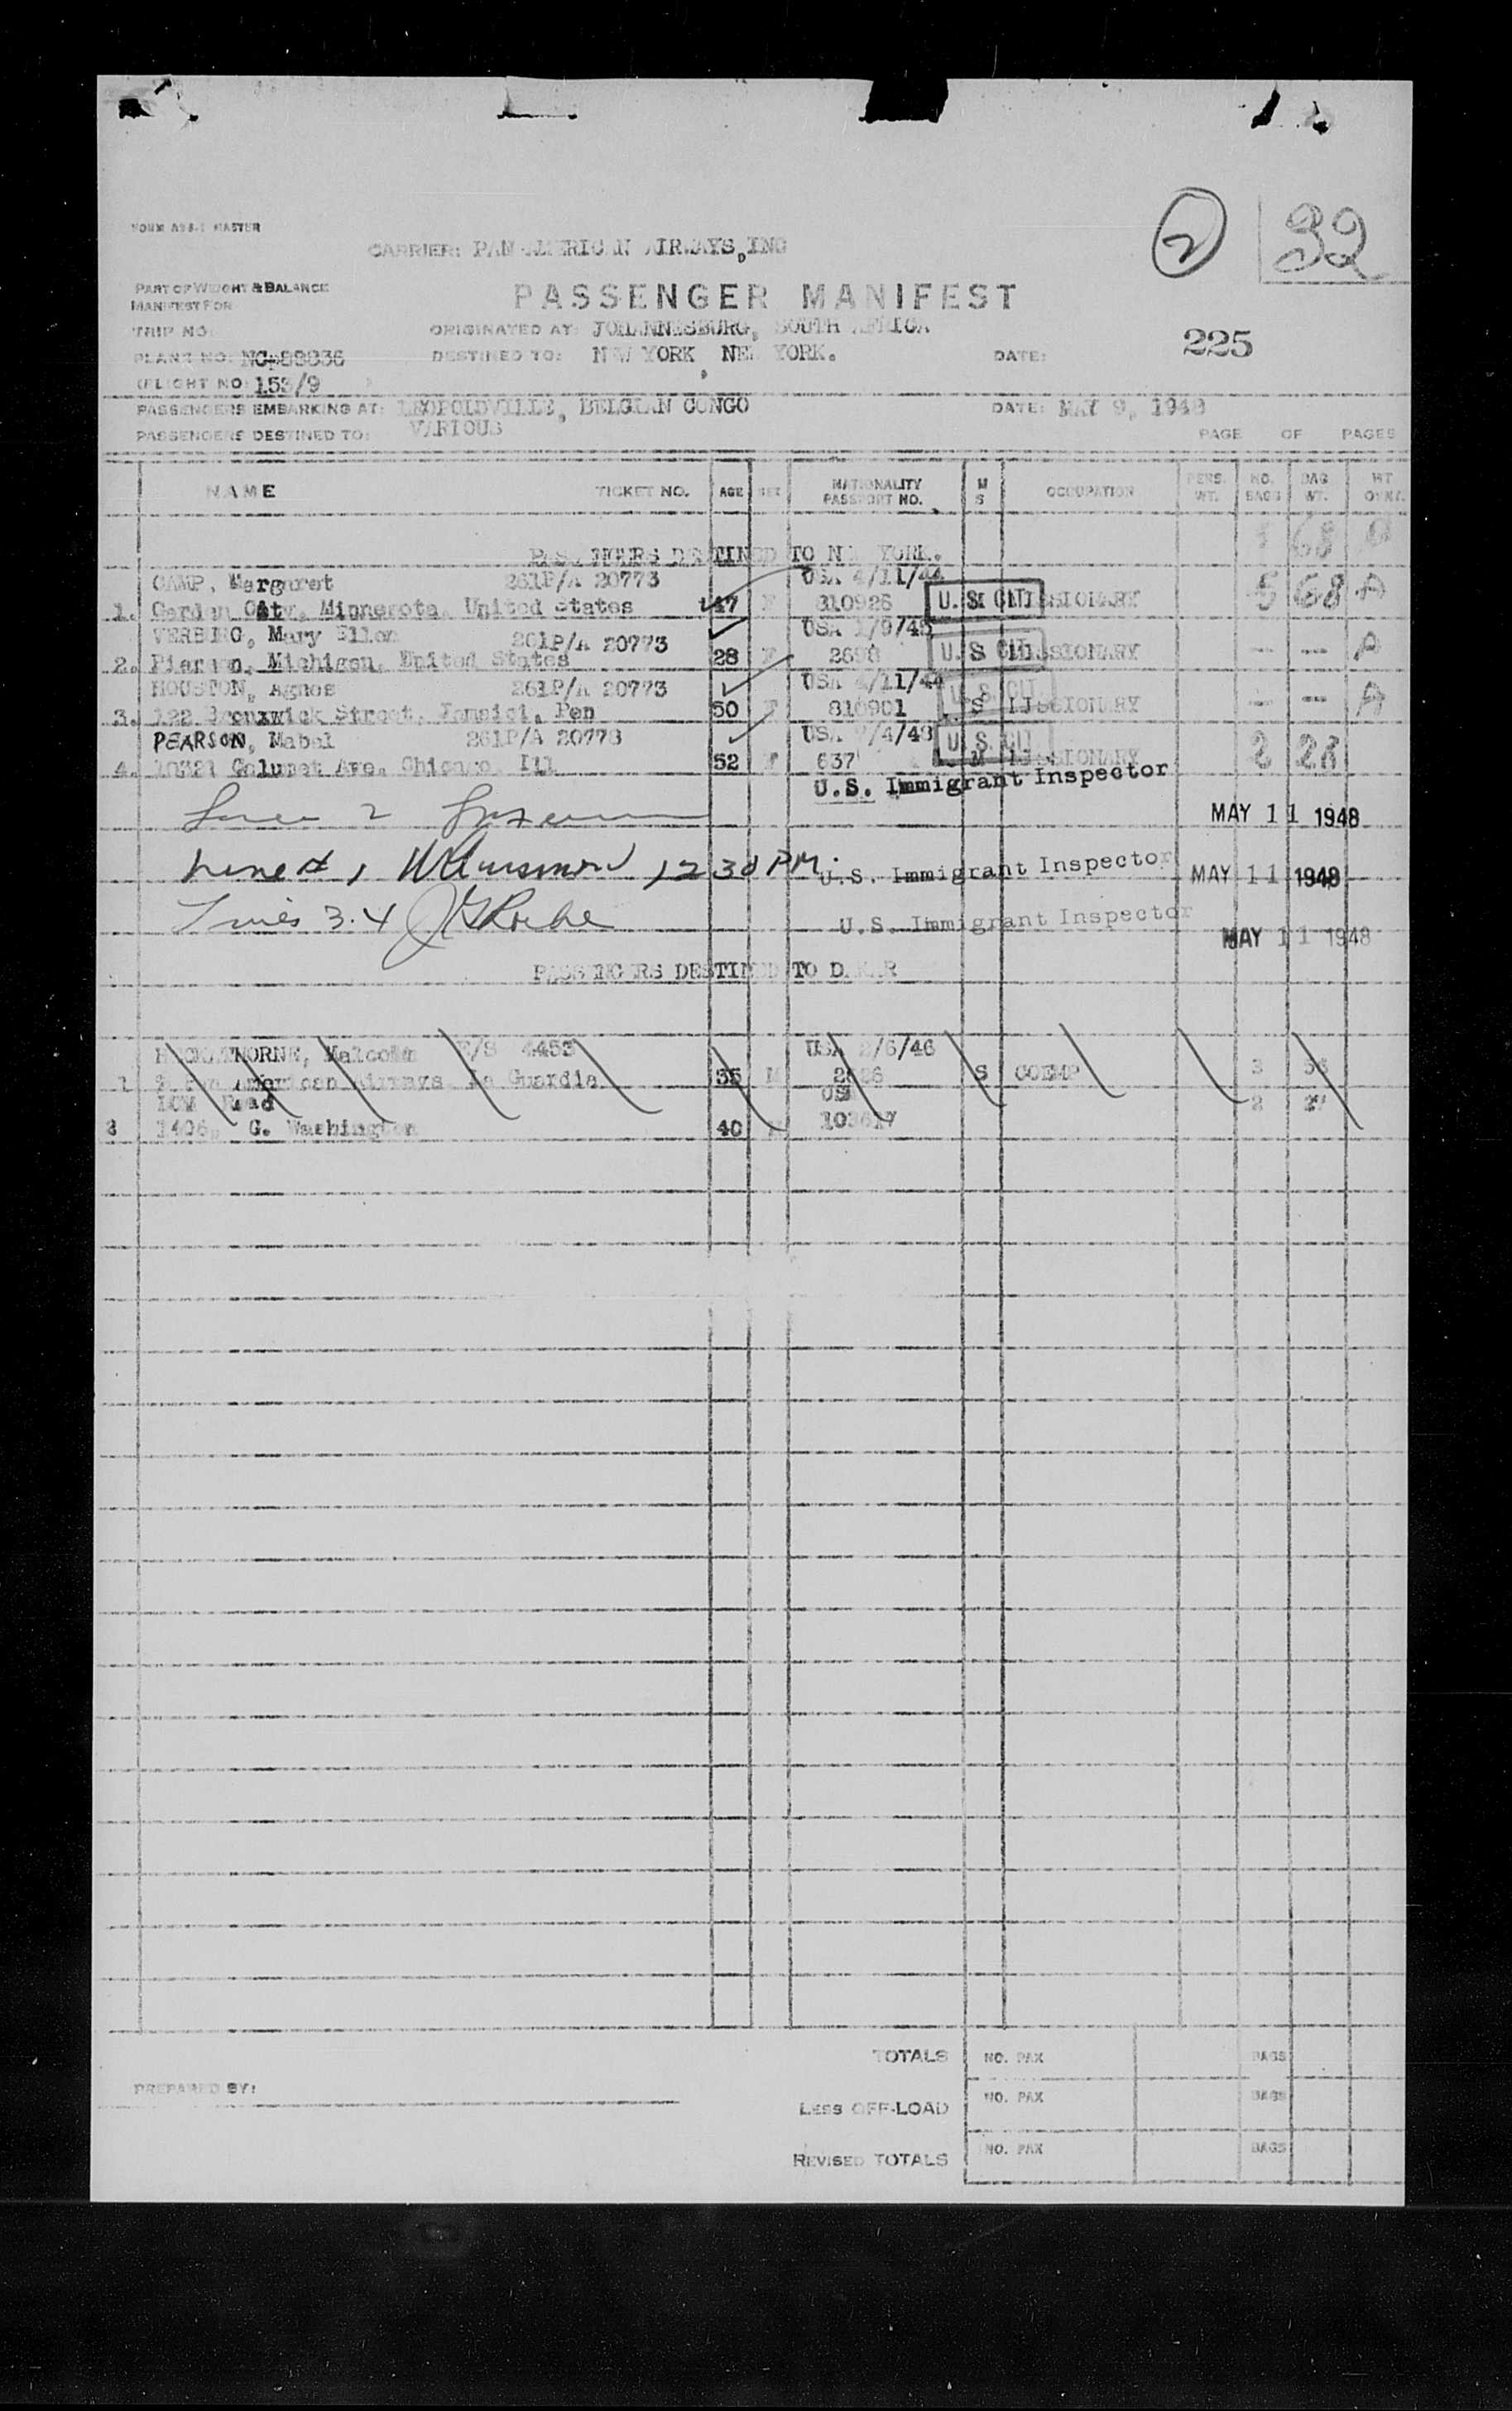 FORM ASS-1 MASTER
2
32
CARRIER: PAN AMERICAN AIRWAYS, INC
PART OF WEIGHT & BALANCE
MANIFEST FOR
PASSENGER MANIFEST
TRIP NO:
ORIGINATED AT: JOHANNESBURG, SOUTH AFRICA
225
PLANE NO: NC-88836
DESTINED TO: NEW YORK, NEW YORK.
DATE:
(FLIGHT NO: 153/9 )
PASSENGERS EMBARKING AT: LEOPOLDVILLE, BELGIAN CONGO
DATE: MAY 9, 1948
PASSENGERS DESTINED TO: VARIOUS
PAGE OF PAGES
NAME TICKET NO. AGE SEX NATIONALITY PASSPORT NO. M S OCCUPATION PERS. WT. NO. BAGS BAG WT.
PASSENGERS DESTINED TO NEW YORK.
CAMP, Margaret 261P/A 20773 USA 4/11/44
1. Garden City, Minnesota, United States 47 F 310926 U.S. CIT MISSIONARY 5 68 A
VERBING, Mary Ellen 261P/A 20773 USA 1/9/45
2. Michigan, United States 28 F 2698 U.S. CIT MISSIONARY - - A
HOUSTON, Agnes 261P/A 20773 USA 4/11/44
3. 122 Street, Pen 50 F 810901 U.S. CIT S MISSIONARY - - A
PEARSON, Mabel 261P/A 20778 USA /4/48
4. 10321 Calumet Ave, Chicago, Ill 52 F 637 U.S. CIT M MISSIONARY 2 28
U.S. Immigrant Inspector
MAY 11 1948
Line # 1 12 30 PM. U.S. Immigrant Inspector MAY 11 1948
Lines 3.4 U.S. Immigrant Inspector
MAY 11 1948
PASSENGERS DESTINED TO DAKAR
HORNE, Malcolm 4453 USA 2/6/46
1 American Airways La Guardia 35 M S 3
LOW USA 2 27
1406, G. Washington 40
TOTALS NO. PAX BAGS
PREPARED BY:
LESS OFF-LOAD NO. PAX BAGS
REVISED TOTALS NO. PAX BAGS